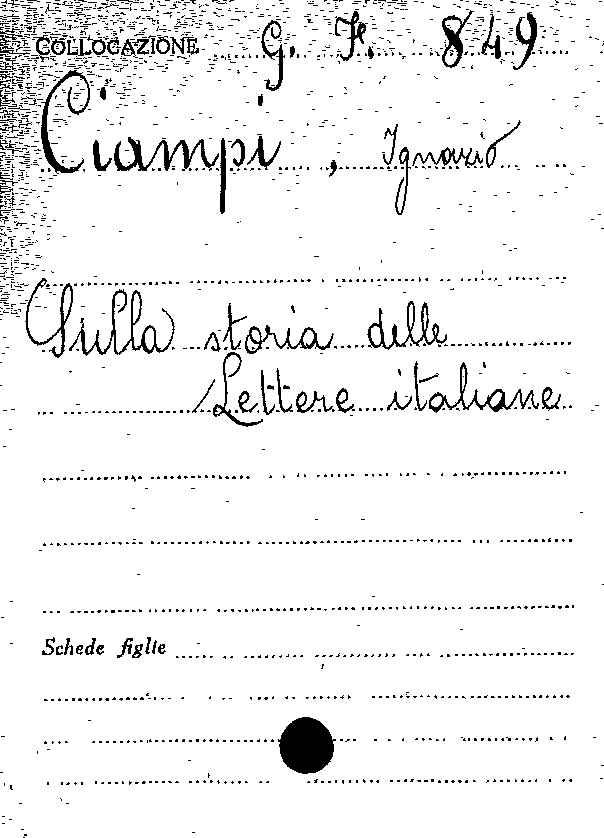 COLLOCAZIONE G. F. 849
Ciampi, Ignazio
Sulla storia delle
Lettere italiane
Schede figlie